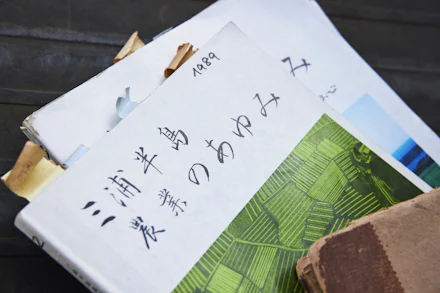 1989
三浦半島
農業のあゆみ
み